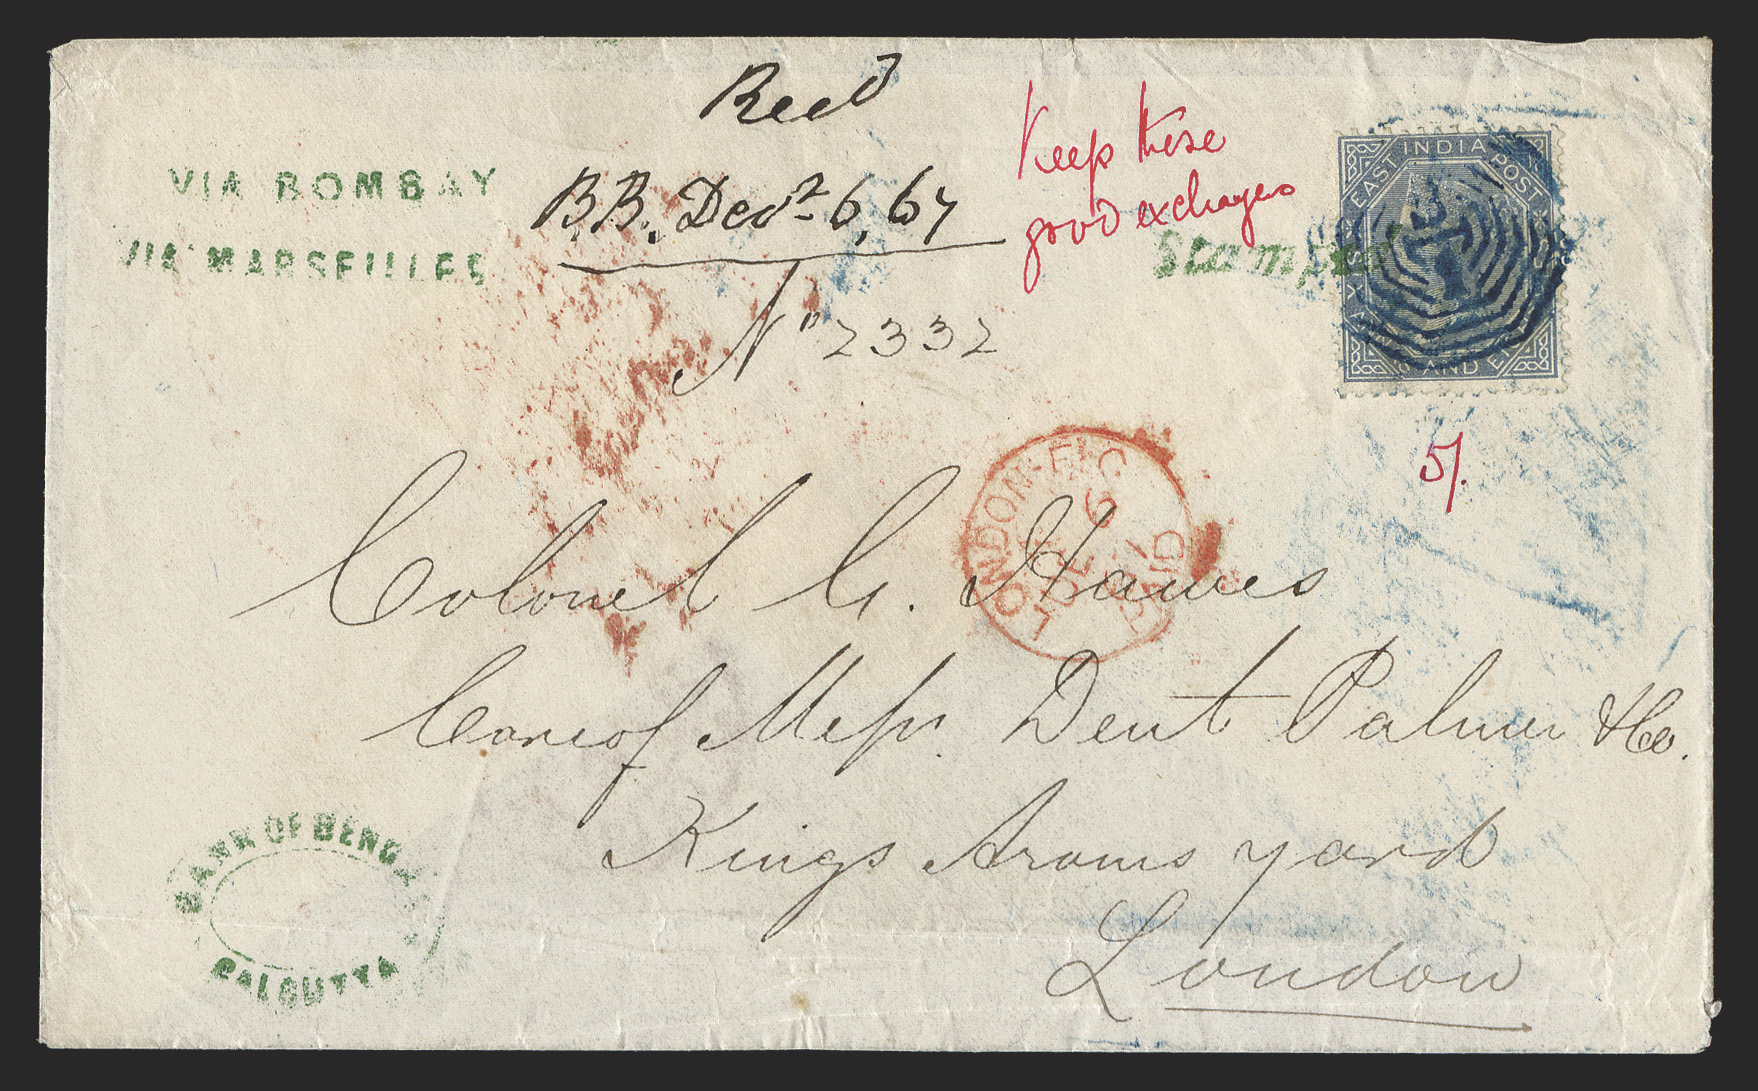 Recd
VIA BOMBAY
B.B. Decr 6, 67
Keep these
good exchanges
VIA MARSEILLES
Stamped
No 2332
EAST INDIA POSTAGE
SIX ANNAS AND EIGHT
5/.
LONDON-E.C
6
DE
67
PAID
Colonel G. Hawes
Care of Messrs. Dent Palmer & Co.
Kings Arms yard
London
BANK OF BENGAL
CALCUTTA